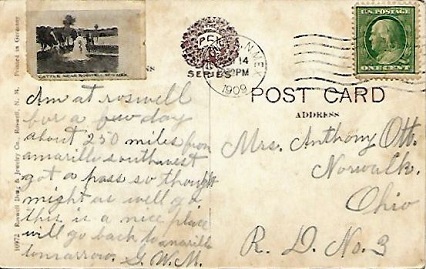 CATTLE NEAR ROSWELL, NEW MEX.
Am at roswell
for a few day
about 250 miles from
amarillo southwest
got a pass so thought
might as well go
this is a nice place
will go back to amarillo
tomarrow. G.W.M.
10972 Roswell Drug & Jewelry Co., Roswell, N. M. Printed in Germany
SERIES
N. MEX
14
PM
1909
U.S. POSTAGE
ONE CENT
POST CARD
ADDRESS
Mrs. Anthony Ott.
Norwalk.
Ohio
R. D. No. 3